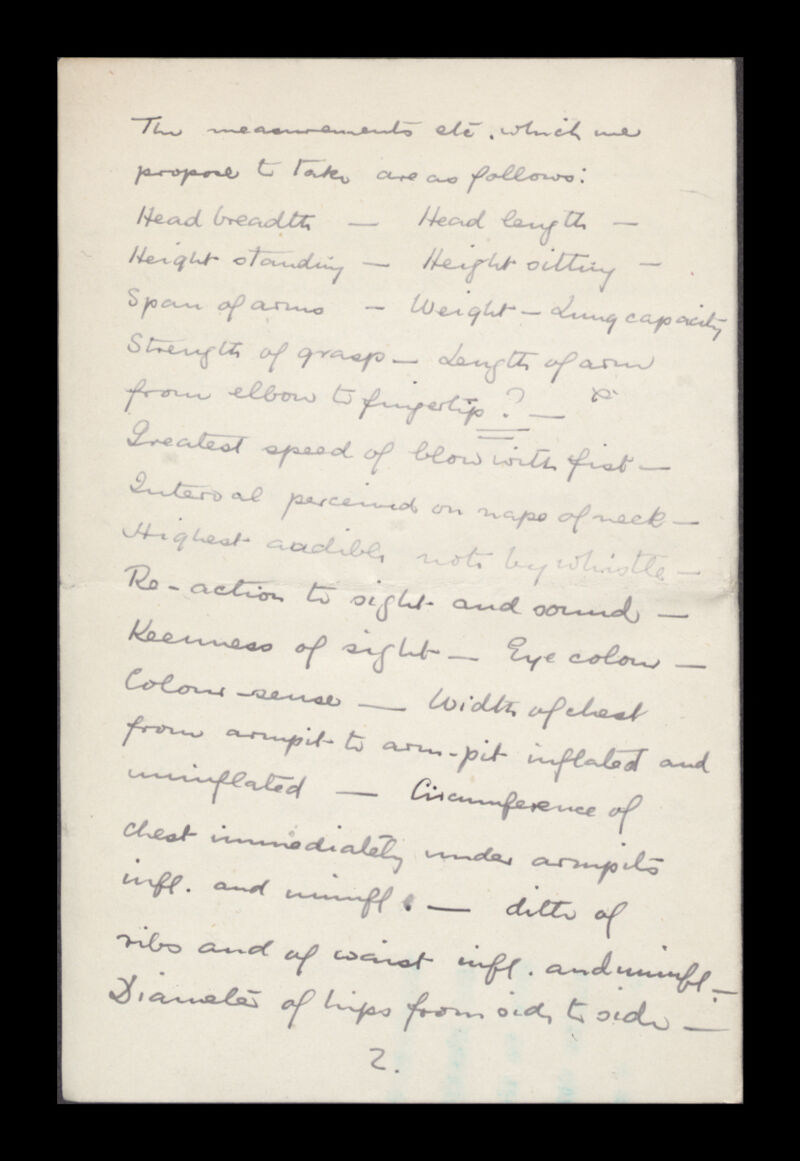 The measurements etc. which we
propose to take are as follows:
Head breadth — Head length —
Height standing — Height sitting —
Span of arms — Weight — Lung capacity
Strength of grasp — Length of arm
from elbow to fingertip ? —
Greatest speed of blow with fist —
Interval perceived on nape of neck —
Highest audible note by whistle —
Re-action to sight and sound —
Keenness of sight — Eye colour —
Colour-sense — Width of chest
from armpit to arm-pit inflated and
uninflated — Circumference of
chest immediately under armpits
infl. and uninfl. — ditto of
ribs and of waist infl. and uninfl —
Diameter of hips from side to side —
2.